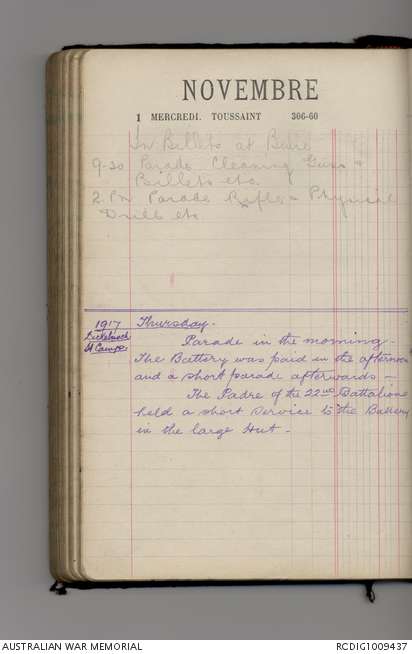 NOVEMBRE
1 MERCREDI. TOUSSAINT 306-60
In Billets at
9-30 Parade Cleaning Guns &
Billets etc.
2. Pm Parade Rifles & Physical
Drill etc
1917 Thursday.
Camp
Parade in the morning.
The Battery was paid in the afternoon
and a short parade afterwards
The Padre of the 22nd Battalion
held a short service to the Battery
in the large Hut.
AUSTRALIAN WAR MEMORIAL
RCDIG1009437